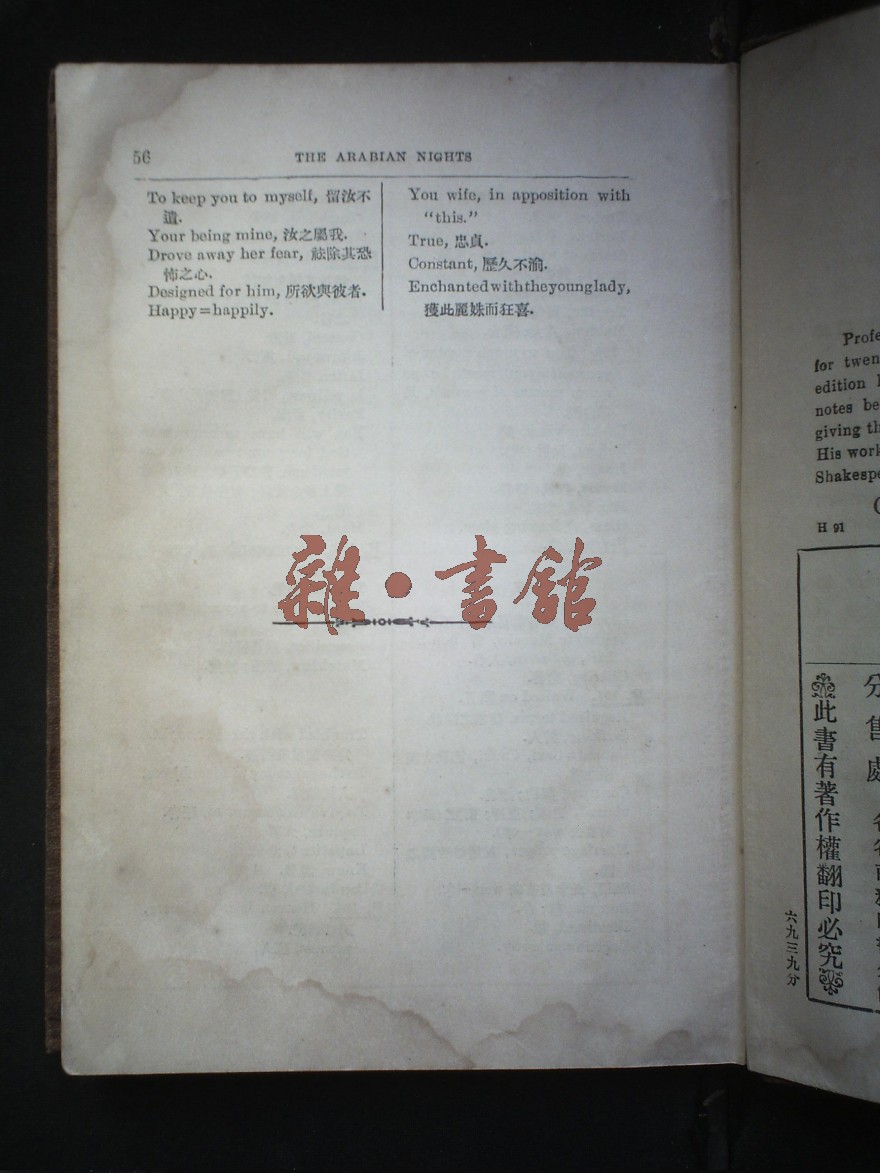 56
THE ARABIAN NIGHTS
To keep you to myself, 留汝不
遣.
Your being mine, 汝之屬我.
Drove away her fear, 祛除其恐
怖之心.
Designed for him, 所欲與彼者.
Happy=happily.
You wife, in apposition with
"this."
True, 忠貞.
Constant, 歷久不渝.
Enchantedwiththeyounglady,
獲此麗姝而狂喜.
雜·書館
Profe
for twen
edition
notes be
giving th
His work
Shakespe
H 91
分售處
此書有著作權翻印必究
六九三九分